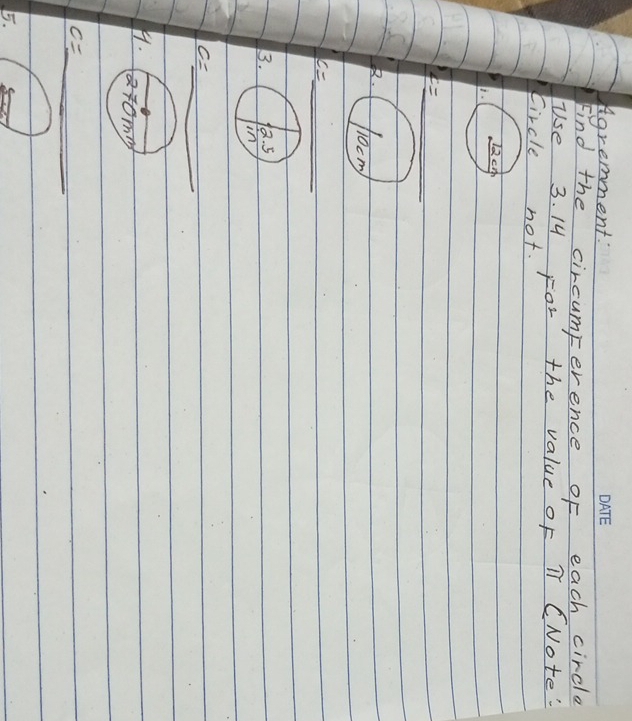 DATE
Agremment:
Find the circumference of each circle
Use 3.14 for the value of π (Note:
Circle not.
1.
12 cm
C=
2.
10cm
C=
3.
12.5
in
C=
4.
270mm
C=
5.